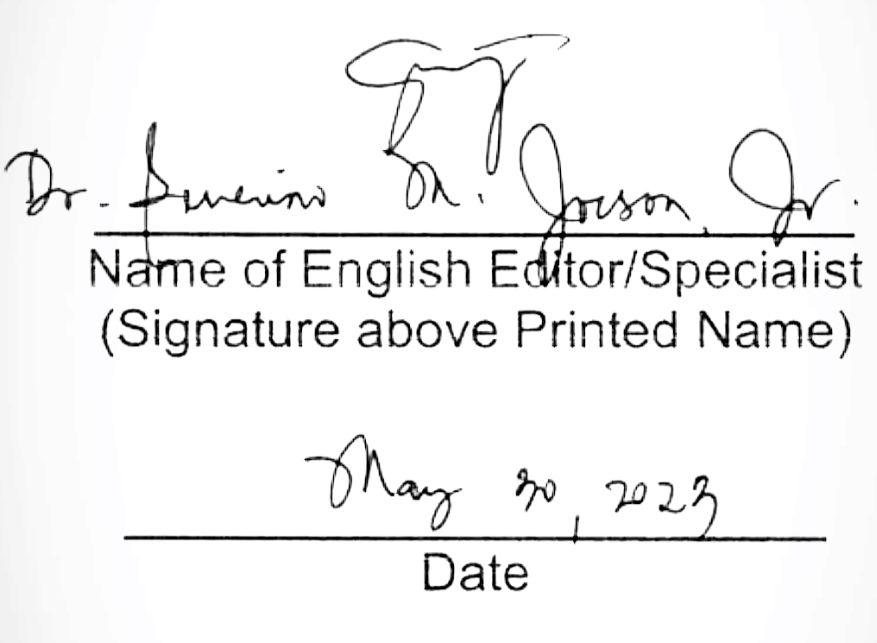 Dr. Severino M. Jocson, Jr.
Name of English Editor/Specialist
(Signature above Printed Name)
May 30, 2023
Date